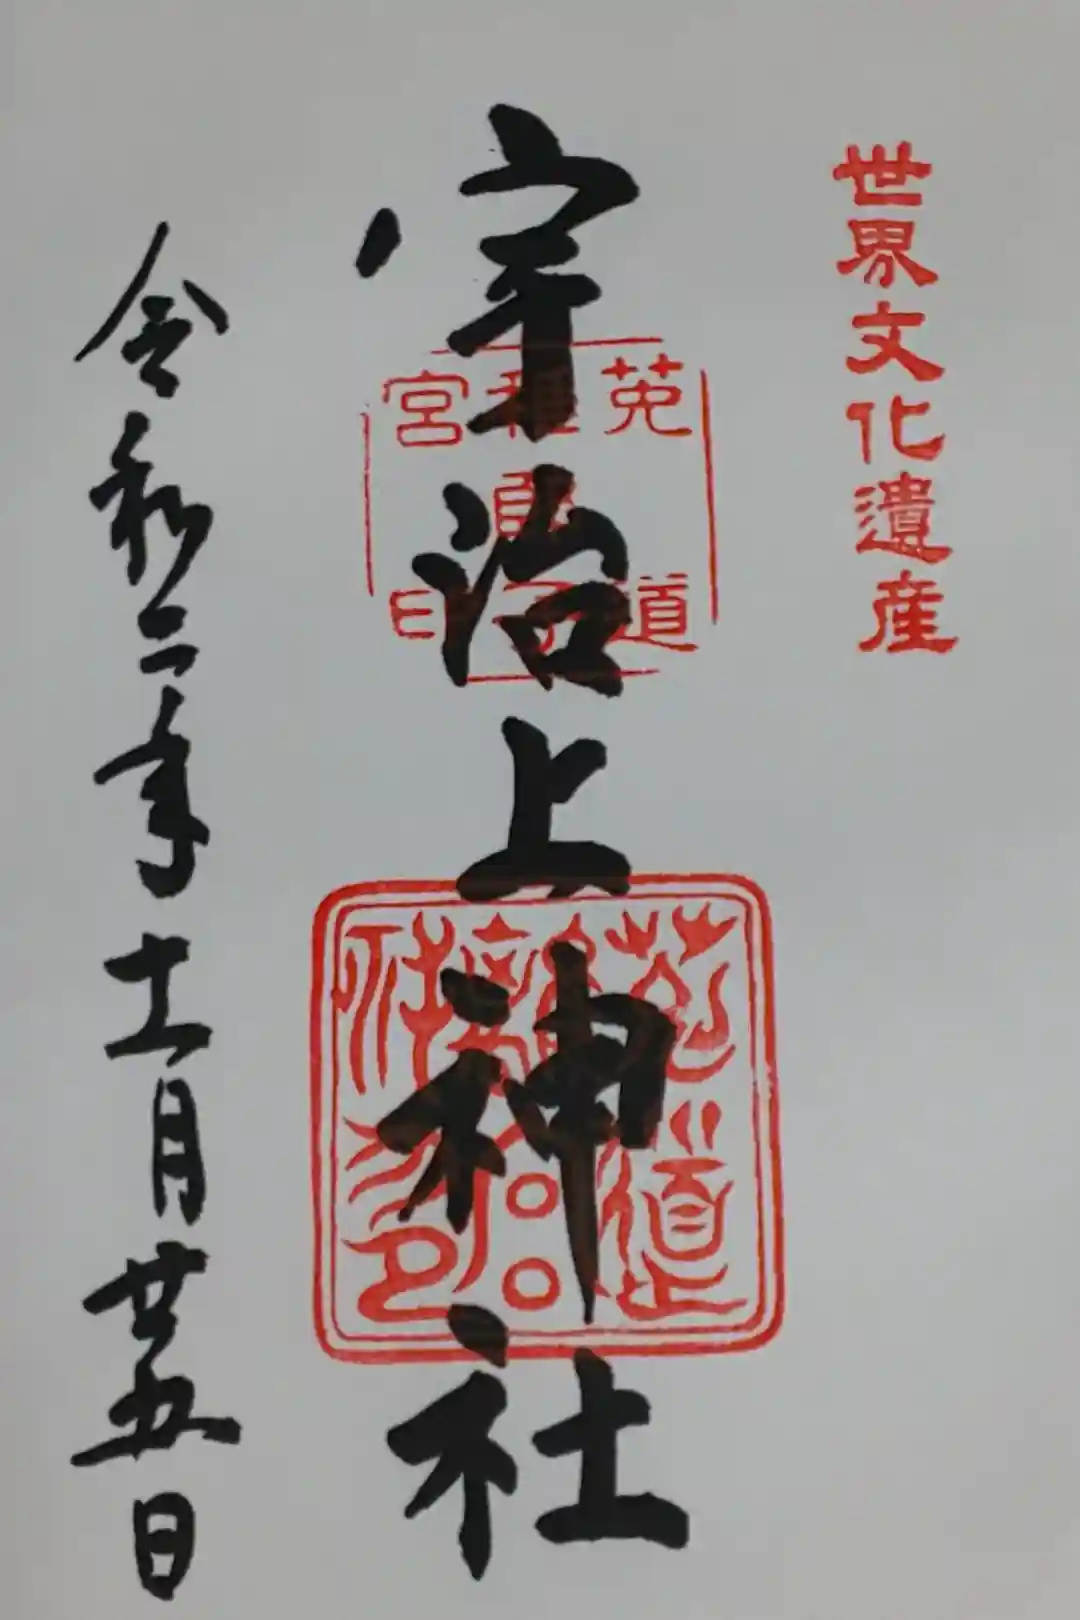 世界文化遺産
宇治上神社
菟道
稚郎子
宮印
令和二年十一月廿五日